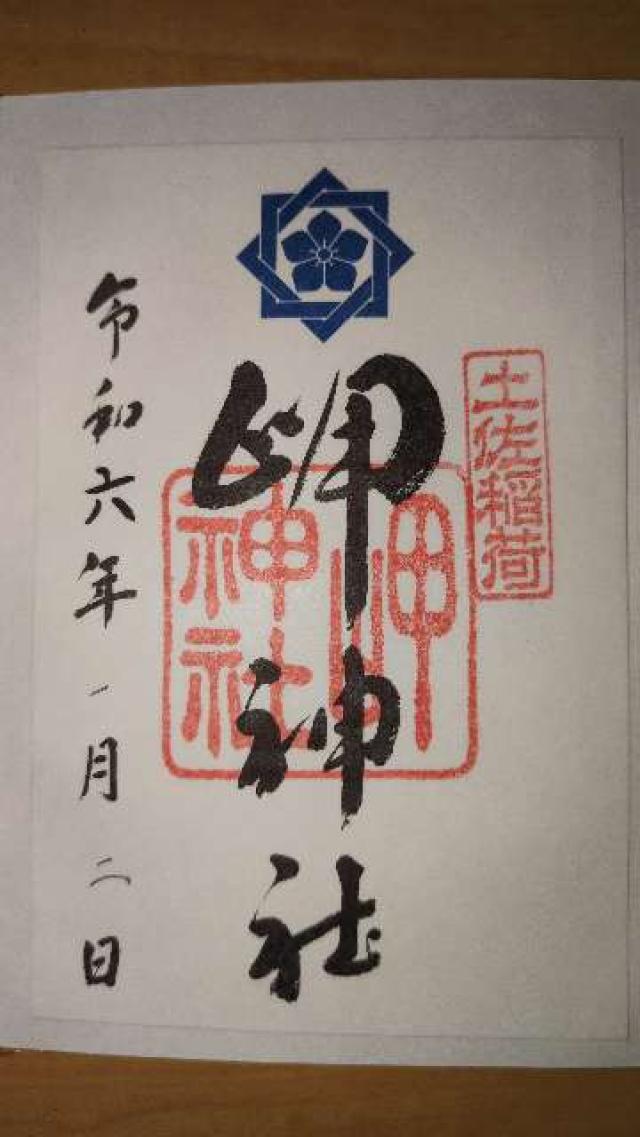 土佐稲荷
岬神社
岬神社
令和六年一月二日